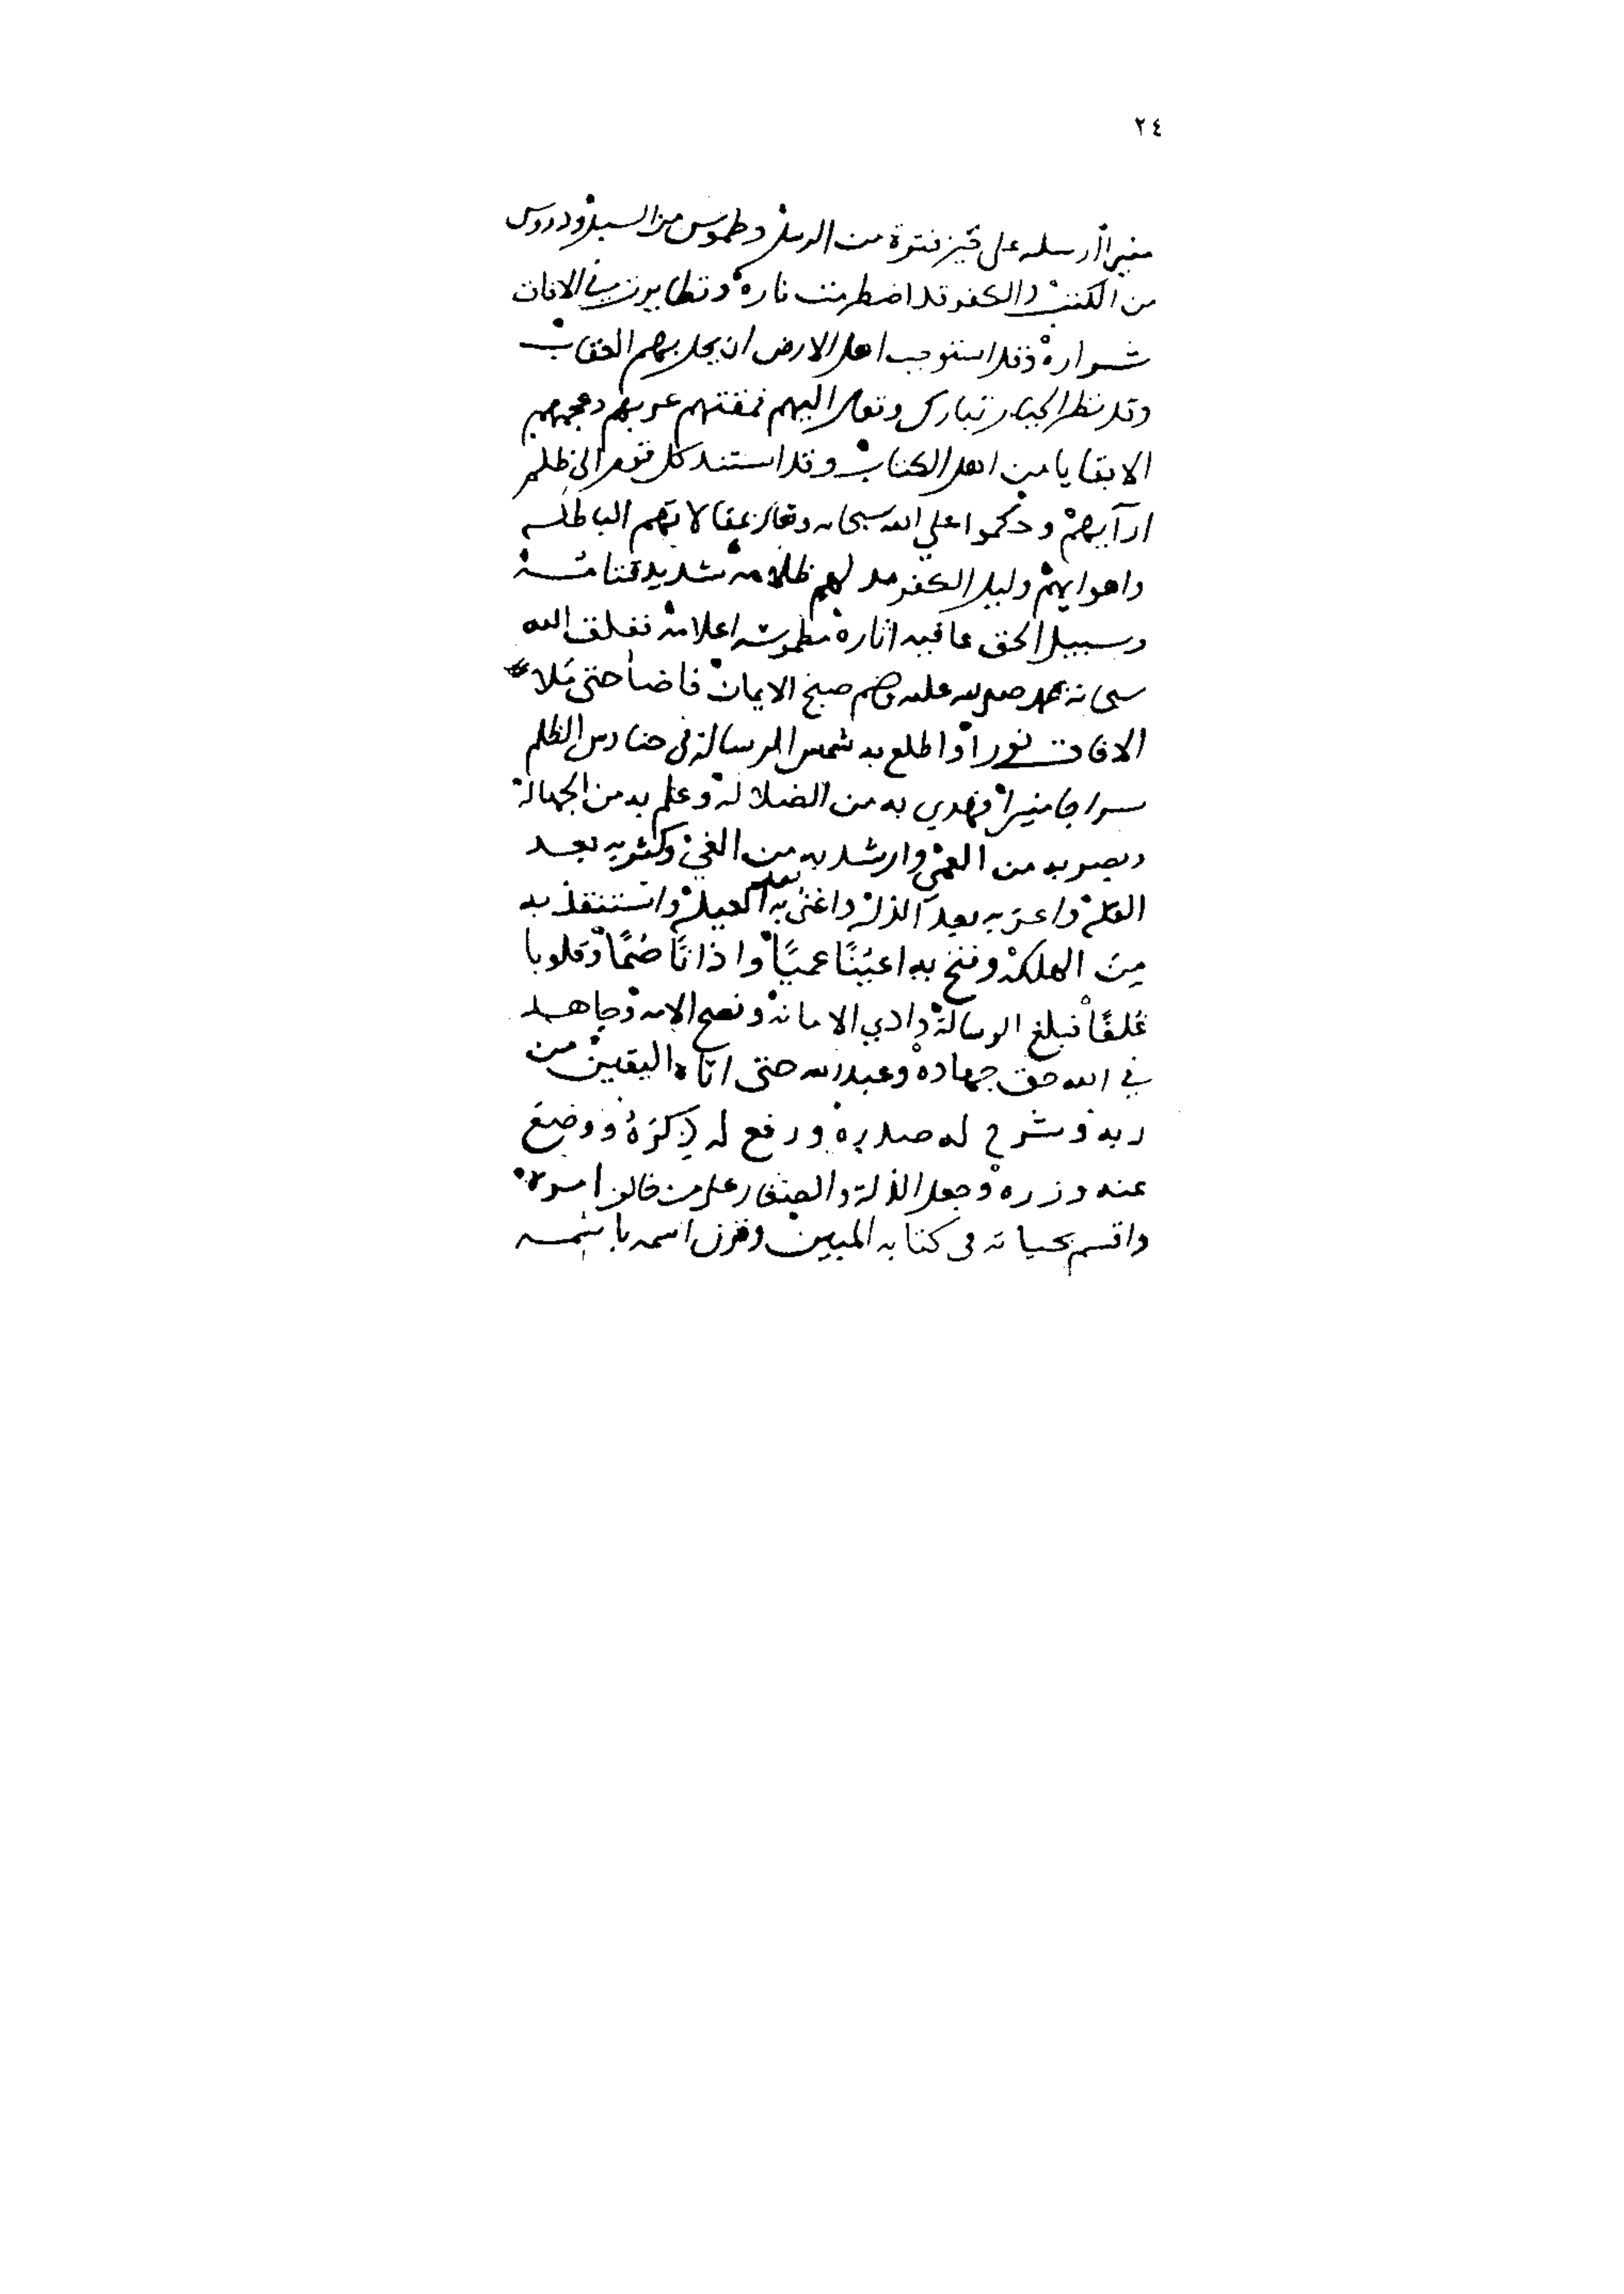 ٢٤
منيرا ارسله على حين فترة من الرسل وطموس من السبل ودروس
من الكتب والكفر قد اضطرمت ناره وتطايرت في الافاق
شراره وقد استوجب اهل الارض ان يحل بهم العقاب
وقد نظر الجبار تبارك وتعالى اليهم فمقتهم عربهم وعجمهم
الا بقايا من اهل الكتاب وقد استند كل قوم الى ظلم
ارآيهم وحكموا على الله سبحانه وتعالى بمقالاتهم الباطلة
واهوايهم وليل الكفر مدلهم ظلامه شديد قتامه
وسبيل الحق عافيه اثاره مطموسة اعلامه ففلق الله
سبحانه بمحمد صلى الله عليه وسلم صبح الايمان فاضا حتى ملا
الافاق نورا واطلع به شمس الرسالة في حنادس الظلم
سراجا منيرا فهدي به من الضلالة وعلم به من الجهالة
وبصر به من العمى وارشد به من الغي وكثر به بعد
القلة واعز به بعد الذلة واغنى به بعد العيلة واستنقذ به
من الهلكة وفتح به اعينا عميا واذانا صما وقلوبا
غلفا فبلغ الرسالة وادي الامانة ونصح الامة وجاهد
في الله حق جهاده وعبد الله حتى اتاه اليقين من
ربه وشرح له صدره ورفع له ذكره ووضع
عنه وزره وجعل الذلة والصغار على من خالف امره
واقسم بحياته في كتابه المبين وقرن اسمه باسمه